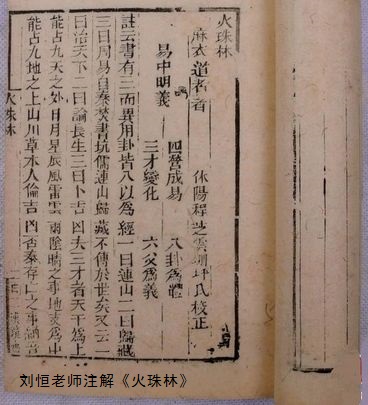 火珠林
麻衣道者著 休陽程芝雲 坪氏校正
四營成易 八卦為體
易中明義
三才變化 六爻為義
註云書有三而異用卦皆八以為經一曰連山二曰歸藏
三曰周易自秦焚書坑儒連山歸藏不傳於世矣又云一
曰治天下二曰論長生三曰卜吉凶夫三才者天干為上
能占九天之外日月星辰風雷雲雨陰晴之事地支為中
能占九地之上山川草木人倫吉凶否泰存亡之事
火珠林
刘恒老师注解《火珠林》